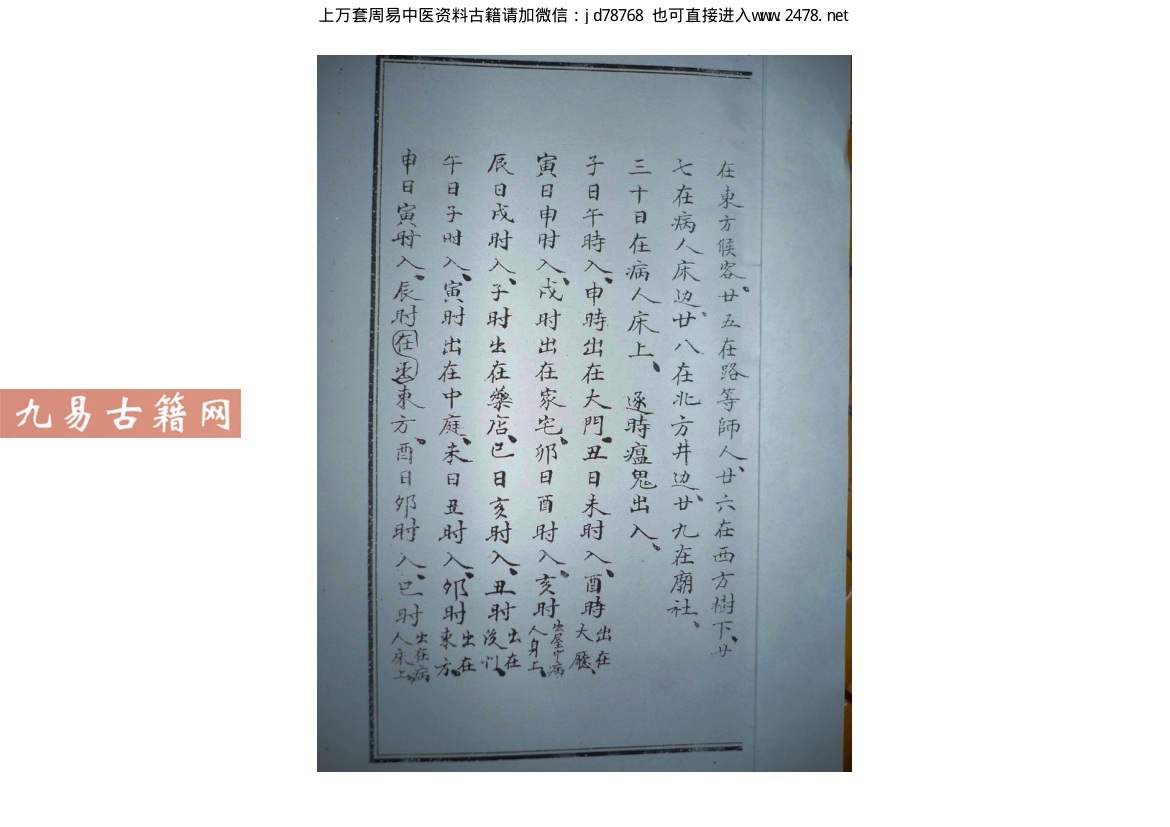 上万套周易中医资料古籍请加微信：jd78768 也可直接进入www.2478.net
在東方候客、廿五在路等師人、廿六在西方樹下、廿
七在病人床边、廿八在北方井边、廿九在廟社、
三十日在病人床上、 逐時瘟鬼出入、
子日午時入、申時出在大門、丑日未时入、酉時出在大廳、
寅日申时入、戌时出在家宅、卯日酉时入、亥时出在病人身上、
辰日戌时入、子时出在藥店、巳日亥时入、丑时出在
午日子时入、寅时出在中庭、未日丑时入、卯时出在東方、
申日寅时入、辰时在出東方、酉日卯时入、巳时出在病人床上、
九易古籍网